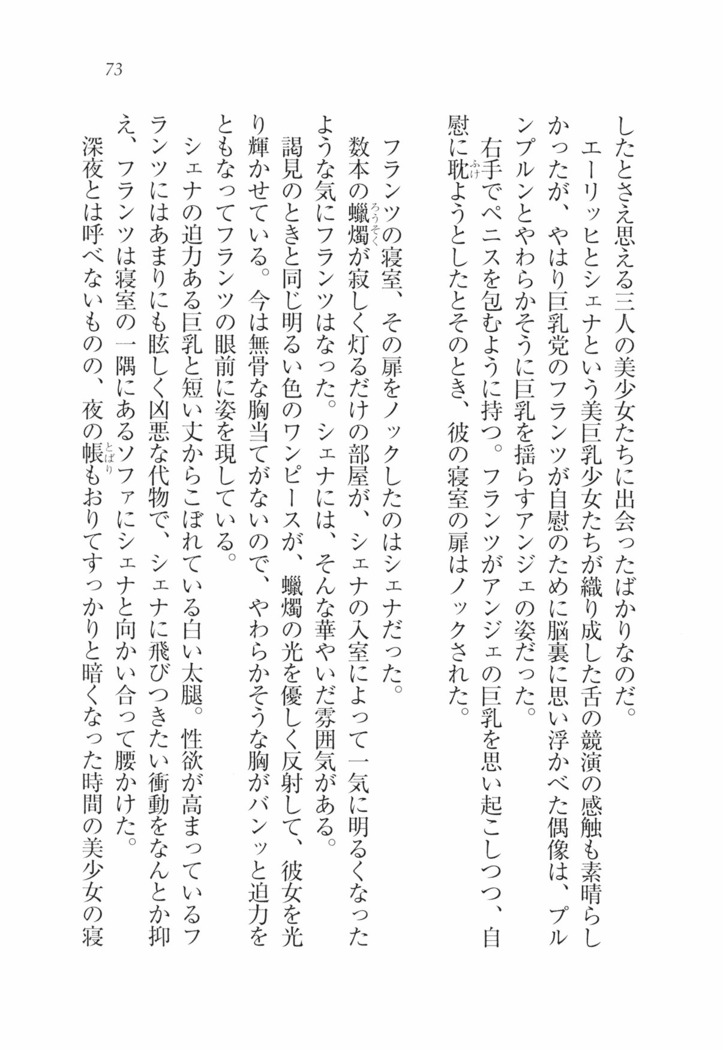 73
したとさえ思える三人の美少女たちに出会ったばかりなのだ。
エーリッヒとシェナという美巨乳少女たちが織り成した舌の競演の感触も素晴らし
かったが、やはり巨乳党のフランツが自慰のために脳裏に思い浮かべた偶像は、プル
ンプルンとやわらかそうに巨乳を揺らすアンジェの姿だった。
右手でペニスを包むように持つ。フランツがアンジェの巨乳を思い起こしつつ、自
慰に耽ふけようとしたとそのとき、彼の寝室の扉はノックされた。
フランツの寝室、その扉をノックしたのはシェナだった。
数本の蠟燭ろうそくが寂しく灯るだけの部屋が、シェナの入室によって一気に明るくなった
ような気にフランツはなった。シェナには、そんな華やいだ雰囲気がある。
謁見のときと同じ明るい色のワンピースが、蠟燭の光を優しく反射して、彼女を光
り輝かせている。今は無骨な胸当てがないので、やわらかそうな胸がバンッと迫力を
ともなってフランツの眼前に姿を現している。
シェナの迫力ある巨乳と短い丈からこぼれている白い太腿。性欲が高まっているフ
ランツにはあまりにも眩しく凶悪な代物で、シェナに飛びつきたい衝動をなんとか抑
え、フランツは寝室の一隅にあるソファにシェナと向かい合って腰かけた。
深夜とは呼べないものの、夜の帳とばりもおりてすっかりと暗くなった時間の美少女の寝